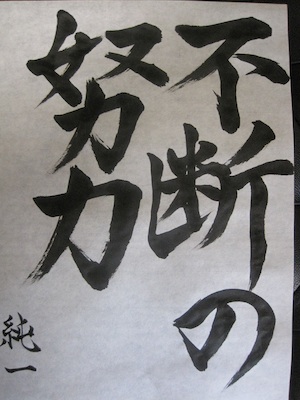 不断の
努力
純一